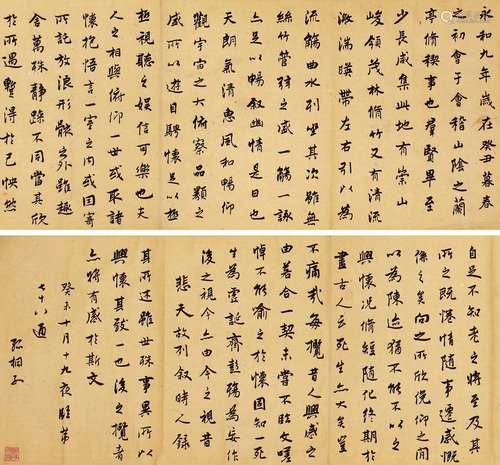 永和九年歲在癸丑暮春
之初會于會稽山陰之蘭
亭脩稧事也群賢畢至
少長咸集此地有崇山
峻領茂林脩竹又有清流
激湍暎帶左右引以為
流觴曲水列坐其次雖無
絲竹管弦之盛一觴一詠
亦足以暢敘幽情是日也
天朗氣清惠風和暢仰
觀宇宙之大俯察品類之
盛所以遊目騁懷足以
極視聽之娛信可樂也夫
人之相與俯仰一世或取諸
懷抱悟言一室之內或因寄
所託放浪形骸之外雖趣
舍萬殊靜躁不同當其欣
於所遇蹔得於己怏然
自足不知老之將至及其
所之既惓情隨事遷感慨
係之矣向之所欣俛仰之閒
以為陳迹猶不能不以之
興懷況脩短隨化終期於
盡古人云死生亦大矣豈
不痛哉每攬昔人興感之
由若合一契未嘗不臨文嗟
悼不能喻之於懷固知一死
生為虛誕齊彭殤為妄作
後之視今亦由今之視昔
悲夫故列敘時人錄
其所述雖世殊事異所以
興懷其致一也後之攬者
亦將有感於斯文
癸未十月十九夜臨第
七十八通